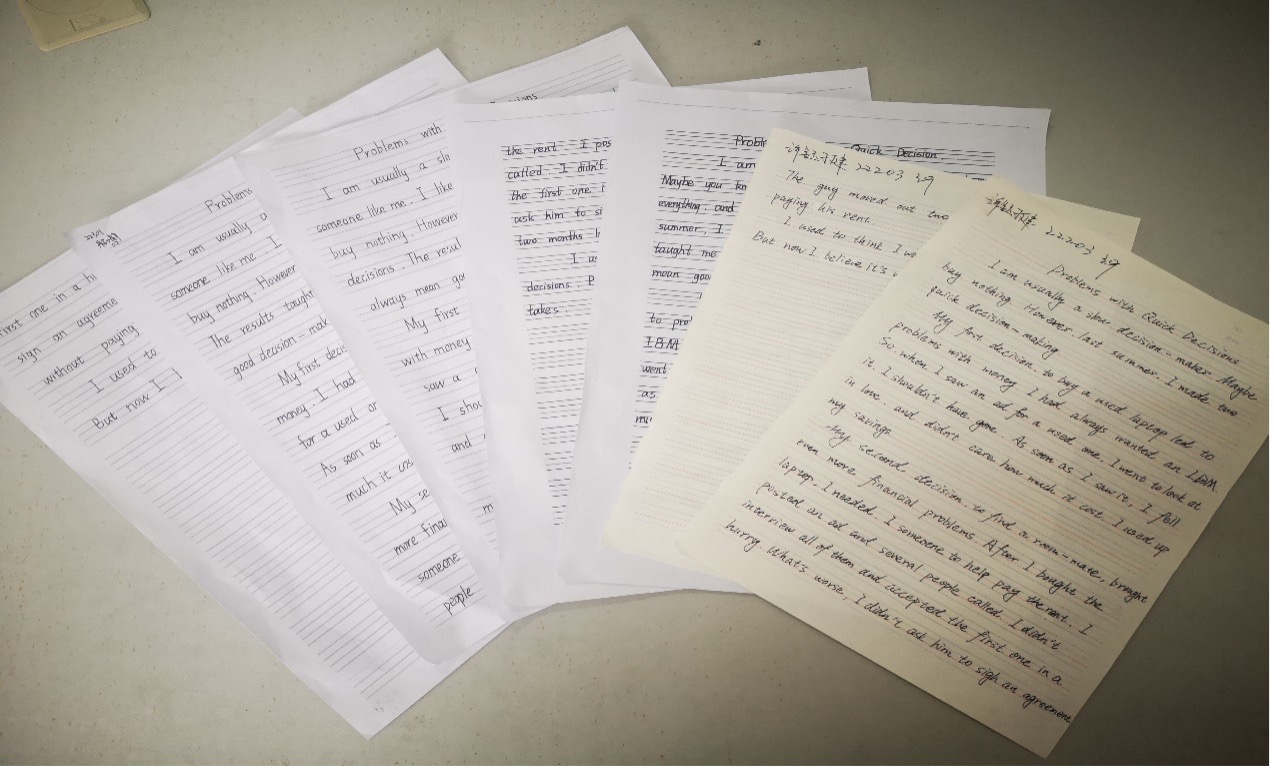 first one in a hu
sign an agreeme
without paying
I used to
But now I b
22201
Problems
I am usually a
someone like me. I
buy nothing. However
The results taught
good decision-mak
My first deci
money. I had
for a used or
As soon as
much it cos
My se
more finan
someone
people
Problems with
I am usually a slo
someone like me. I like
buy nothing. However
decisions. The resul
always mean go
My first
with money
saw a
I shou
and
m
isions
the rent. I pos
called. I didn't
the first one i
ask him to si
two months l
I us
decisions. B
takes.
Proble Quick Decision
I am
Maybe you kn
everything and
summer, I
taught me
mean goo
to pro
IBM
went
as
my
22203 39
The guy moved out two
paying his rent.
I used to think I wo
But now I believe it's
22203 39
Problems with Quick Decisions
I am usually a slow decision-maker. Maybe
buy nothing. However last summer. I made two
quick decision-making
My first decision to buy a used laptop led to
problems with money I had always wanted an IBM.
So when I saw an ad for a used one. I went to look at
it. I shouldn't have gone. As soon as I saw it, I fell
in love. and didn't care how much it cost. I used up
my savings
My second decision. to find a room-mate, brought
even more financial problems. After I bought the
laptop. I needed. I someone to help pay the rent. I
posted an ad and several people called. I didn't
interview all of them and accepted the first one in a
hurry. What's worse, I didn't ask him to sigh an agreement